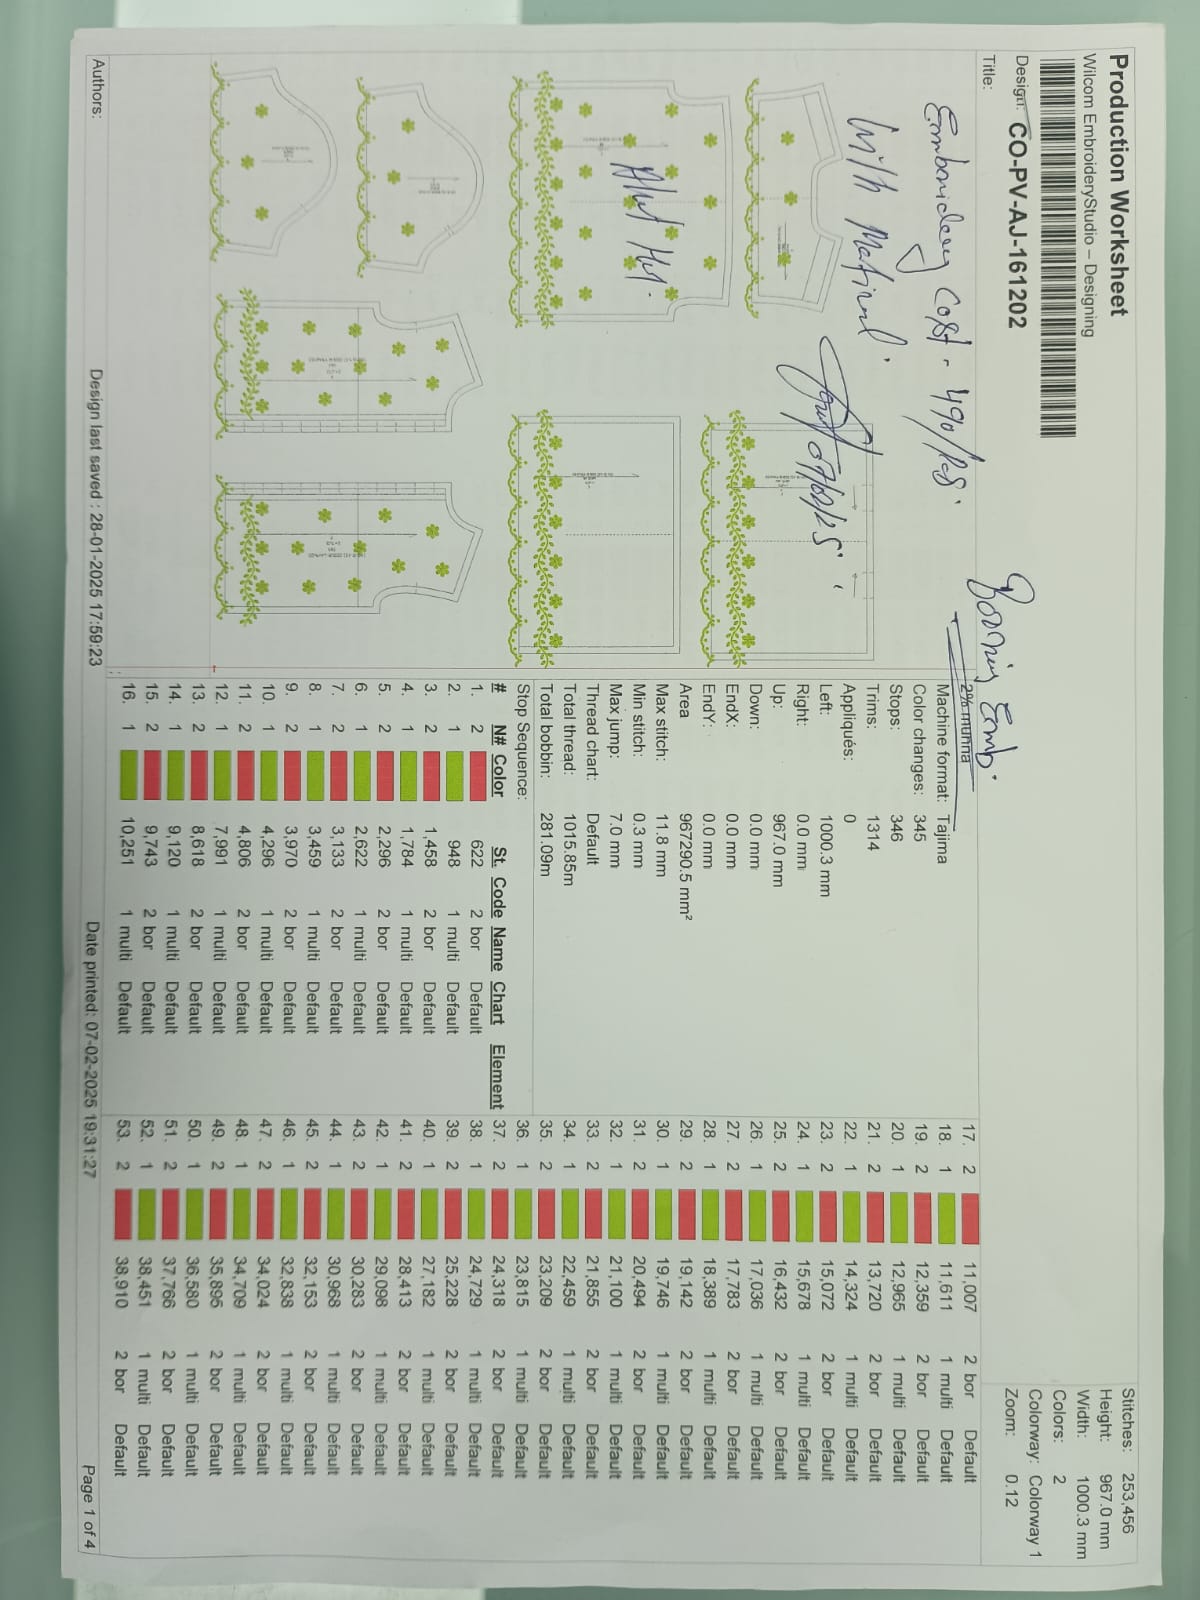 Production Worksheet
Wilcom EmbroideryStudio – Designing
Stitches: 253,456
Height: 967.0 mm
Width: 1000.3 mm
Colors: 2
Colorway: Colorway 1
Zoom: 0.12
Design: CO-PV-AJ-161202
Title:
Cost - 490/
With
Emb.
2% munna
Machine format: Tajima
Color changes: 345
Stops: 346
Trims: 1314
Appliqués: 0
Left: 1000.3 mm
Right: 0.0 mm
Up: 967.0 mm
Down: 0.0 mm
EndX: 0.0 mm
EndY: 0.0 mm
Area 967290.5 mm²
Max stitch: 11.8 mm
Min stitch: 0.3 mm
Max jump: 7.0 mm
Thread chart: Default
Total thread: 1015.85m
Total bobbin: 281.09m
Stop Sequence:
# N# Color St. Code Name Chart Element
1. 2 622 2 bor Default
2. 1 948 1 multi Default
3. 2 1,458 2 bor Default
4. 1 1,784 1 multi Default
5. 2 2,296 2 bor Default
6. 1 2,622 1 multi Default
7. 2 3,133 2 bor Default
8. 1 3,459 1 multi Default
9. 2 3,970 2 bor Default
10. 1 4,296 1 multi Default
11. 2 4,806 2 bor Default
12. 1 7,991 1 multi Default
13. 2 8,618 2 bor Default
14. 1 9,120 1 multi Default
15. 2 9,743 2 bor Default
16. 1 10,251 1 multi Default
17. 2 11,007 2 bor Default
18. 1 11,611 1 multi Default
19. 2 12,359 2 bor Default
20. 1 12,965 1 multi Default
21. 2 13,720 2 bor Default
22. 1 14,324 1 multi Default
23. 2 15,072 2 bor Default
24. 1 15,678 1 multi Default
25. 2 16,432 2 bor Default
26. 1 17,036 1 multi Default
27. 2 17,783 2 bor Default
28. 1 18,389 1 multi Default
29. 2 19,142 2 bor Default
30. 1 19,746 1 multi Default
31. 2 20,494 2 bor Default
32. 1 21,100 1 multi Default
33. 2 21,855 2 bor Default
34. 1 22,459 1 multi Default
35. 2 23,209 2 bor Default
36. 1 23,815 1 multi Default
37. 2 24,318 2 bor Default
38. 1 24,729 1 multi Default
39. 2 25,228 2 bor Default
40. 1 27,182 1 multi Default
41. 2 28,413 2 bor Default
42. 1 29,098 1 multi Default
43. 2 30,283 2 bor Default
44. 1 30,968 1 multi Default
45. 2 32,153 2 bor Default
46. 1 32,838 1 multi Default
47. 2 34,024 2 bor Default
48. 1 34,709 1 multi Default
49. 2 35,895 2 bor Default
50. 1 36,580 1 multi Default
51. 2 37,766 2 bor Default
52. 1 38,451 1 multi Default
53. 2 38,910 2 bor Default
Authors:
Design last saved : 28-01-2025 17:59:23
Date printed: 07-02-2025 19:31:27
Page 1 of 4